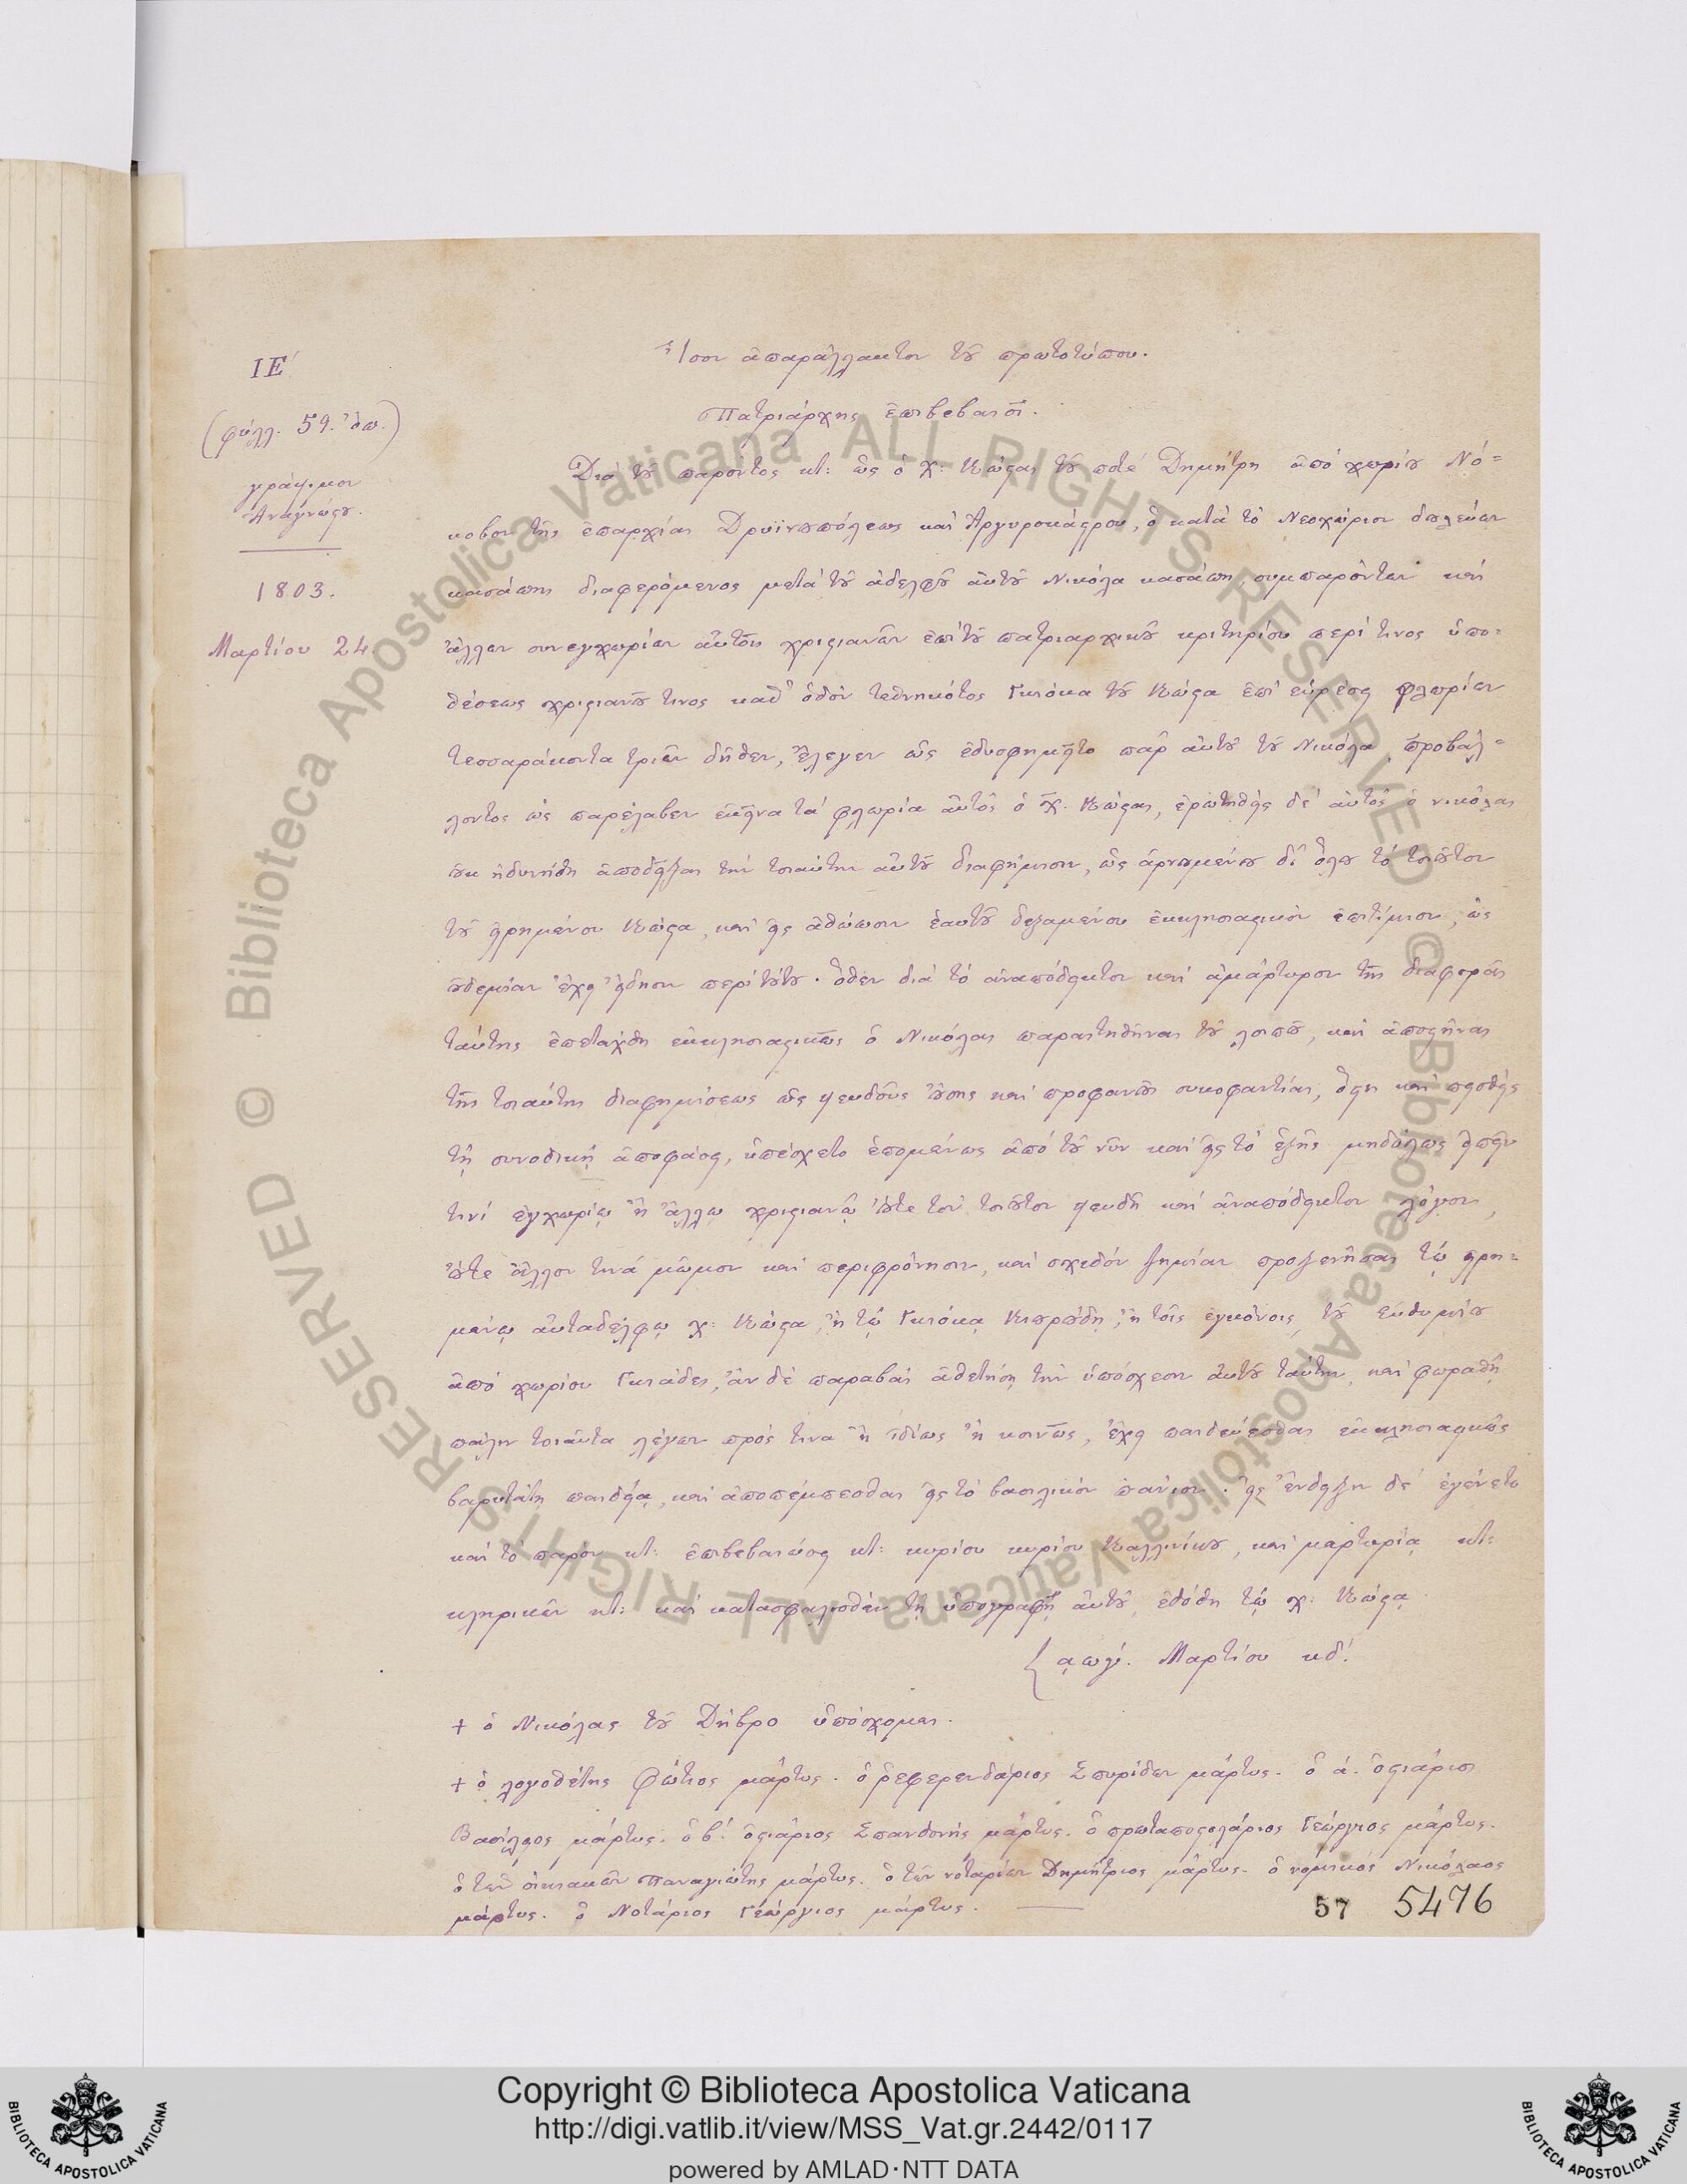 ΙΕ΄
(φύλλ. 59. ὄπ.)
γράψιμον
Ἀναγνώστου.
1803.
Μαρτίου 24.
Ἴσον ἀπαράλλακτον τοῦ πρωτοτύπου.
Πατριάρχης ἐπιβεβαιοῖ.
Διὰ τοῦ παρόντος κτ: ὡς ὁ χ: Κώστας τοῦ ποτέ Δημήτρη ἀπό χωρίου Νό=
κοβον τῆς ἐπαρχίας Δρυϊνουπόλεως καὶ Ἀργυροκάστρου, ὁ κατὰ τὸ Νεοχώριον δουλεύων
κασάπης διαφερόμενος μετὰ τοῦ ἀδελφοῦ αὐτοῦ Νικόλα κασάπη, συμπαρόντων καὶ
ἄλλων συνεγχωρίων αὐτοῖς χριστιανῶν ἐπὶ τοῦ πατριαρχικοῦ κριτηρίου περί τινος ὑπο-
θέσεως χριστιανοῦ τινος καθ᾽ ὁδὸν τεθνηκότος Γκιόκα τοῦ Κώστα ἐπὶ εὑρέσει φλωρίων
τεσσαράκοντα τριῶν δῆθεν, ἔλεγεν ὡς ἐδυσφημεῖτο παρ᾽ αὐτοῦ τοῦ Νικόλα, προβαλ=
λοντος ὡς παρέλαβεν ἐκεῖνα τὰ φλωρία αὐτὸς ὁ χ. Κώστας, ἐρωτηθεὶς δὲ αὐτὸς ὁ νικόλας
οὐκ ἠδυνήθη ἀποδεῖξαι τὴν τοιαύτην αὐτοῦ διαφήμισιν, ὡς ἀρνουμένου δι᾽ ὅλου τὸ τοιοῦτον
τοῦ εἰρημένου Κώστα, καὶ εἰς ἀθώωσιν ἑαυτοῦ δεξαμένου ἐκκλησιαστικὸν ἐπιτίμιον, ὡς
οὐδεμίαν ἔχει εἴδησιν περὶ τούτου. ὅθεν διὰ τὸ ἀναπόδεικτον καὶ ἀμάρτυρον τῆς διαφορᾶς
ταύτης ἐπεταχθη ἐκκλησιαστικῶς ὁ Νικόλας παραιτηθῆναι τοῦ λοιποῦ, καὶ ἀποστῆναι
τῆς τοιαύτης διαφημίσεως ὡς ψευδοῦς οὔσης καὶ προφανοῦς συκοφαντίας, ὅστις καὶ πεισθεὶς
τῇ συνοδικῇ ἀποφάσει, ὑπέσχετο ἑπομένως ἀπὸ τοῦ νῦν καὶ εἰς τὸ ἑξῆς μηδόλως εἰπεῖν
τινί ἐγχωρίῳ ἢ ἄλλῳ χριστιανῷ οὔτε τὸν τοιοῦτον ψευδῆ καὶ ἀναπόδεικτον λόγον,
οὔτε ἄλλον τινά μῶμον καὶ περιφρόνησιν, καὶ σχεδόν ζημίαν προξενῆσαι τῷ εἰρη=
μένῳ αὐταδέλφῳ χ: Κώστα, ἢ τῷ Γκιόκα ἢ τοῖς ἐγκόνοις τοῦ Εὐθυμίου
ἀπό χωρίου Γκιάδες, ἂν δὲ παραβὰς ἀθετήσῃ τὴν ὑπόσχεσιν αὐτοῦ ταύτην, καὶ φωραθῇ
πάλιν τοιαῦτα λέγων πρός τινα ἢ ἰδίως ἢ κοινῶς, ἔχει παιδεύεσθαι ἐκκλησιαστικῶς
βαρυτάτῃ παιδείᾳ, καὶ ἀποπέμπεσθαι εἰς τὸ βασιλικόν πάνιον. εἰς ἔνδειξιν δὲ ἐγένετο
καὶ τὸ παρον κτ: ἐπιβεβαιώσει κτ: κυρίου κυρίου Καλλινίκου, καὶ μαρτυρίᾳ κτ:
κληρικῶν κτ: καὶ κατασφαλισθὲν τῇ ὑπογραφῇ αὐτοῦ, ἐδόθη τῷ χ: Κώστᾳ
͵αωγ΄. Μαρτίου κδ΄.
+ ὁ Νικόλας τοῦ Δήβρο ὑπόσχομαι.
+ ὁ λογοθέτης Φώτιος μάρτυς. ὁ ῥεφερενδάριος Σπυρίδων μάρτυς. ὁ ά. ὀστιάριος
Βασίλειος μάρτυς. ὁ β΄. ὀστιάριος Σπανδονής μάρτυς. ὁ πρωταποστολάριος Γεώργιος μάρτυς.
ὁ τῶν οἰκιακῶν Παναγιώτης μάρτυς. ὁ τῶν νοταρίων Δημήτριος μάρτυς. ὁ νομικός Νικόλαος
μάρτυς. ὁ Νοτάριος Γεώργιος μάρτυς.
57 5476
© Biblioteca Apostolica Vaticana ALL RIGHTS RESERVED
© Biblioteca Apostolica Vaticana ALL RIGHTS RESERVED
BIBLIOTECA APOSTOLICA VATICANA
Copyright © Biblioteca Apostolica Vaticana
http://digi.vatlib.it/view/MSS_Vat.gr.2442/0117
powered by AMLAD·NTT DATA
BIBLIOTECA APOSTOLICA VATICANA